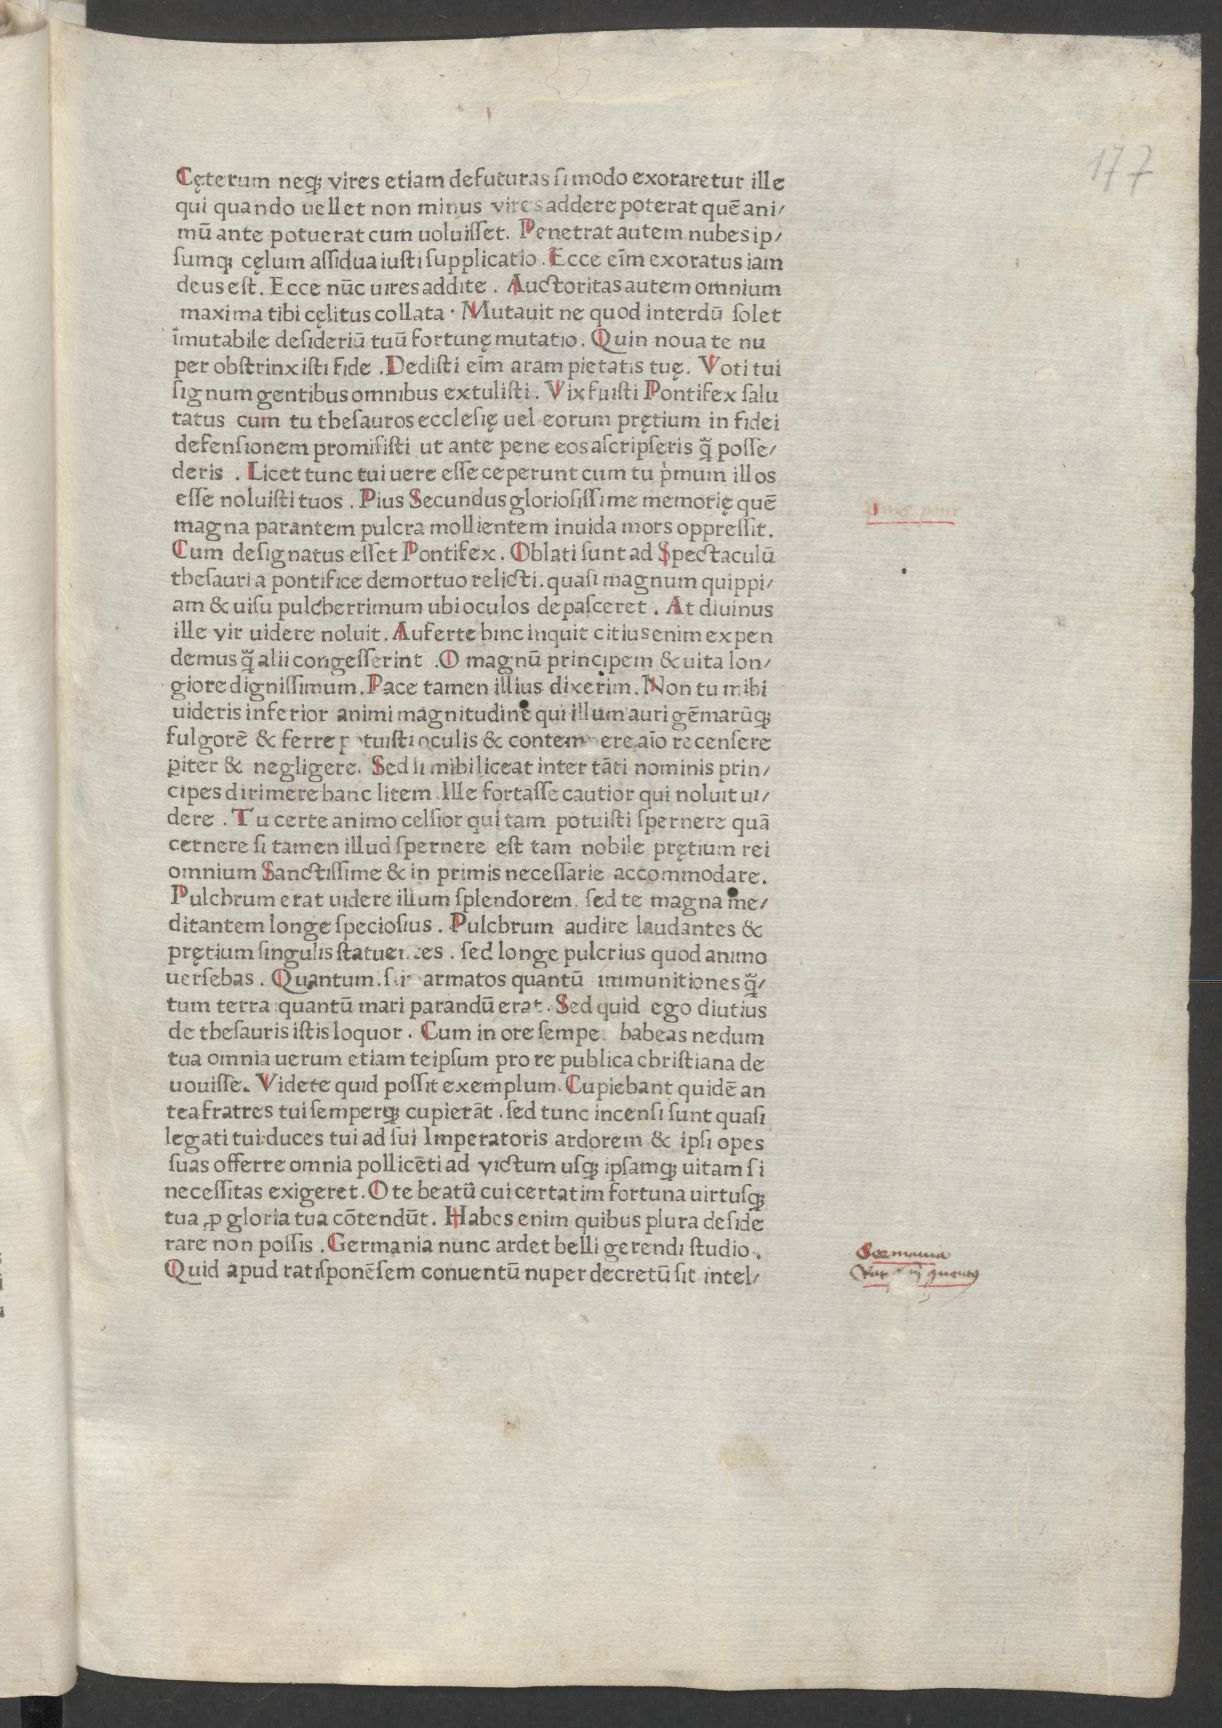 177
Cęterum neqꝫ vires etiam defuturas si modo exoraretur ille
qui quando uellet non minus vires addere poterat quē ani/
mū ante potuerat cum uoluisset. Penetrat autem nubes ip/
sumqꝫ cęlum assidua iusti supplicatio. Ecce eīm exoratus iam
deus est. Ecce nūc uires addite. Auctoritas autem omnium
maxima tibi cęlitus collata. Mutauit ne quod interdū solet
īmutabile desideriū tuū fortunę mutatio. Quin noua te nu
per obstrinxisti fide. Dedisti eīm aram pietatis tuę. Voti tui
signum gentibus omnibus extulisti. Vix fuisti Pontifex salu
tatus cum tu thesauros ecclesię uel eorum pretium in fidei
defensionem promisisti ut ante pene eos ascripseris q̃ posse/
deris. Licet tunc tui uere esse ceperunt cum tu p̍mum illos
esse noluisti tuos. Pius Secundus gloriosissime memorię quē
magna parantem pulcra mollientem inuida mors oppressit.
Cum designatus esset Pontifex. Oblati sunt ad Spectaculū
thesauri a pontifice demortuo relicti. quasi magnum quippi/
am & uisu pulcherrimum ubi oculos depasceret. At diuinus
ille vir uidere noluit. Auferte hinc inquit citius enim expen
demus q̃ alii congesserint. O magnū principem & uita lon/
giore dignissimum. Pace tamen illius dixerim. Non tu mihi
uideris inferior animi magnitudine qui illum auri gēmarūqꝫ
fulgorē & ferre potuisti oculis & contemnere aīo recensere
ꝑiter & negligere. Sed si mihi liceat inter tāti nominis prin/
cipes dirimere hanc litem. Ille fortasse cautior qui noluit ui/
dere. Tu certe animo celsior qui tam potuisti spernere quā
cernere si tamen illud spernere est tam nobile prętium rei
omnium Sanctissime & in primis necessarie accommodare.
Pulchrum erat uidere illum splendorem. sed te magna me/
ditantem longe speciosius. Pulchrum audire laudantes &
prętium singulis statuentes. sed longe pulcrius quod animo
uersebas. Quantum. armatos quantū immunitiones q̃/
tum terra quantū mari parandū erat. Sed quid ego diutius
de thesauris istis loquor. Cum in ore semper habeas nedum
tua omnia uerum etiam teipsum pro re publica christiana de
uouisse. Videte quid possit exemplum. Cupiebant quidē an
tea fratres tui semperqꝫ cupierāt. sed tunc incensi sunt quasi
legati tui duces tui ad sui Imperatoris ardorem & ipsi opes
suas offerre omnia pollicēti ad victum usqꝫ ipsamqꝫ uitam si
necessitas exigeret. O te beatū cui certatim fortuna uirtusqꝫ
tua ꝓ gloria tua cōtendūt. Habes enim quibus plura deside
rare non possis. Germania nunc ardet belli gerendi studio.
Quid apud ratisponēsem conuentū nuper decretū sit intel/
Germania